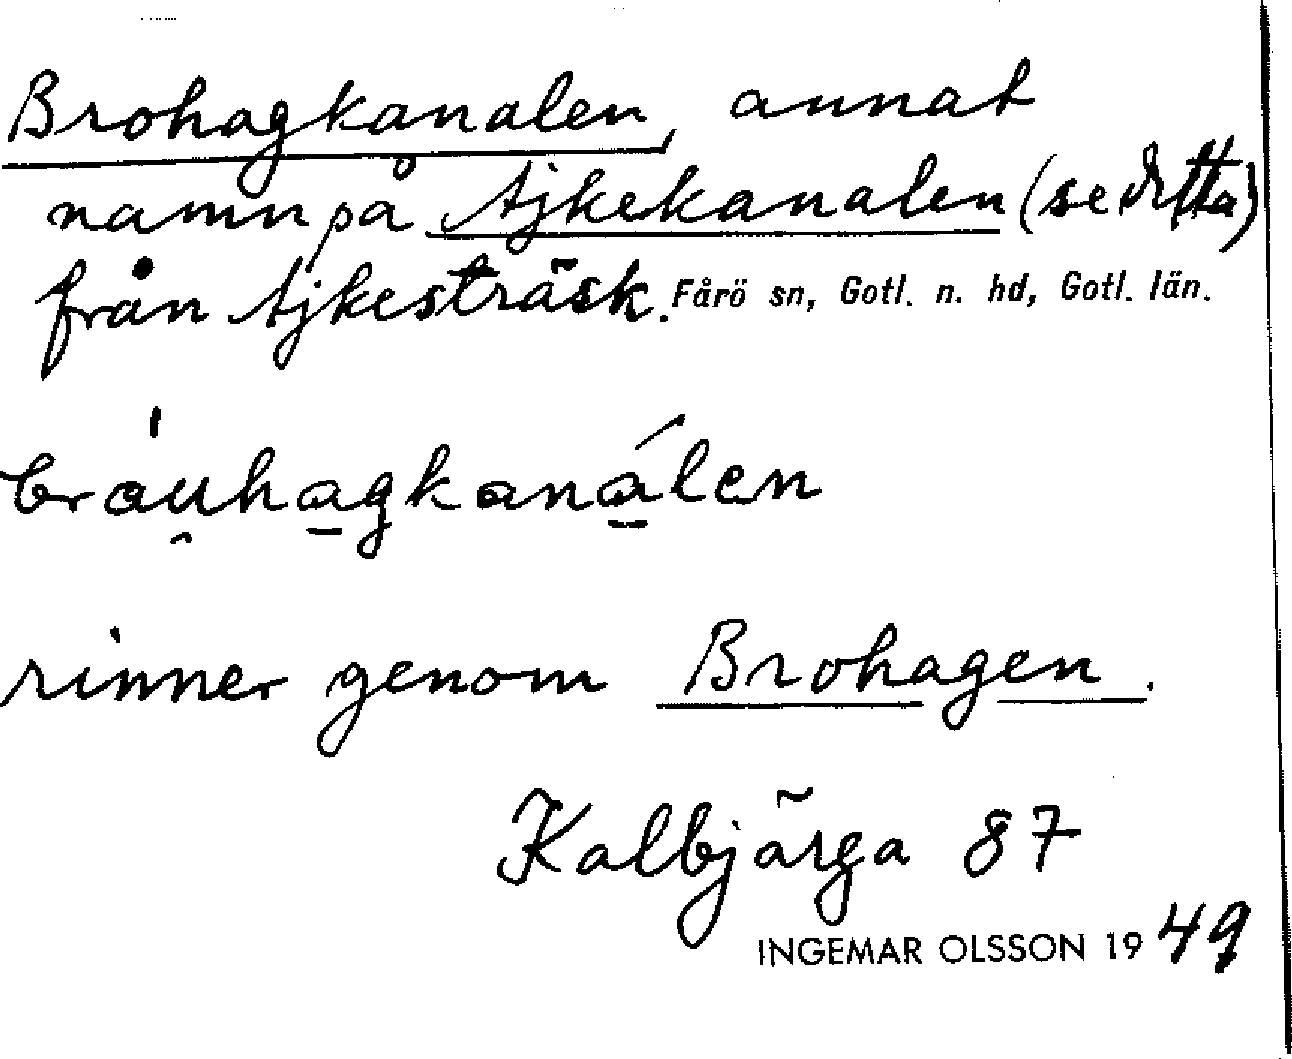 Brohagkanalen, annat
namn på Ajkekanalen (se detta)
från Ajkesträsk. Fårö sn, Gotl. n. hd, Gotl. län.
bráu̯ha̲gkaná̲len
rinner genom Brohagen.
Kalbjärga 87
INGEMAR OLSSON 1949